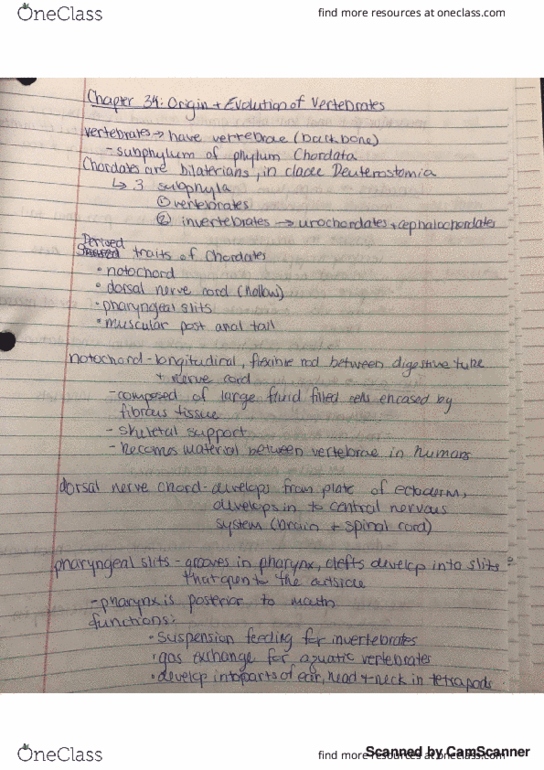 OneClass
find more resources at oneclass.com
Chapter 34: Origin + Evolution of Vertebrates
vertebrates → have vertebrae (backbone)
- subphylum of phylum Chordata
Chordates are bilaterians, in clade Deuterostomia
↳ 3 subphyla
① vertebrates
② invertebrates → urochordates + cephalochordates
Derived
traits of chordates
• notochord
• dorsal nerve cord (hollow)
• pharyngeal slits
• muscular post anal tail
notochord - longitudinal, flexible rod between digestive tube
+ nerve cord
- composed of large fluid filled cells encased by
fibrous tissue
- skeletal support
- becomes material between vertebrae in humans
dorsal nerve chord - develops from plate of ectoderm,
develops in to central nervous
system (brain + spinal cord)
pharyngeal slits - grooves in pharynx, clefts develop into slits ?
that open to the outside
- pharynx is posterior to mouth
functions:
• suspension feeding for invertebrates
• gas exchange for aquatic vertebrates
• develop into parts of ear, head + neck in tetrapods
OneClass
find more resources at oneclass.com
Scanned by CamScanner